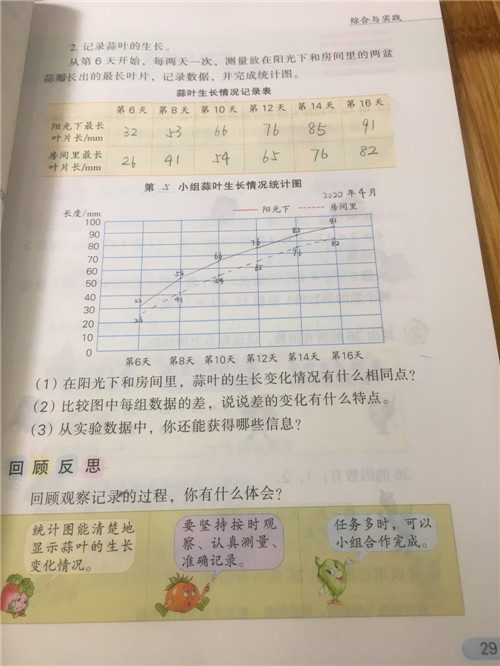 综合与实践
2. 记录蒜叶的生长。
从第 6 天开始，每两天一次，测量放在阳光下和房间里的两盆
蒜瓣长出的最长叶片，记录数据，并完成统计图。
蒜叶生长情况记录表
第 6 天 第 8 天 第 10 天 第 12 天 第 14 天 第 16 天
阳光下最长
叶片长/mm 32 53 66 76 85 91
房间里最长
叶片长/mm 26 41 54 65 76 82
第 5 小组蒜叶生长情况统计图
2020 年 4 月
长度/mm 阳光下 房间里
100
90
80
70
60
50
40
30
20
10
0
91
85
82
76
76
66
65
53
54
41
32
26
第6天 第8天 第10天 第12天 第14天 第16天
（1）在阳光下和房间里，蒜叶的生长变化情况有什么相同点？
（2）比较图中每组数据的差，说说差的变化有什么特点。
（3）从实验数据中，你还能获得哪些信息？
回顾反思
回顾观察记录的过程，你有什么体会？
统计图能清楚地
显示蒜叶的生长
变化情况。
要坚持按时观
察、认真测量、
准确记录。
任务多时，可以
小组合作完成。
29